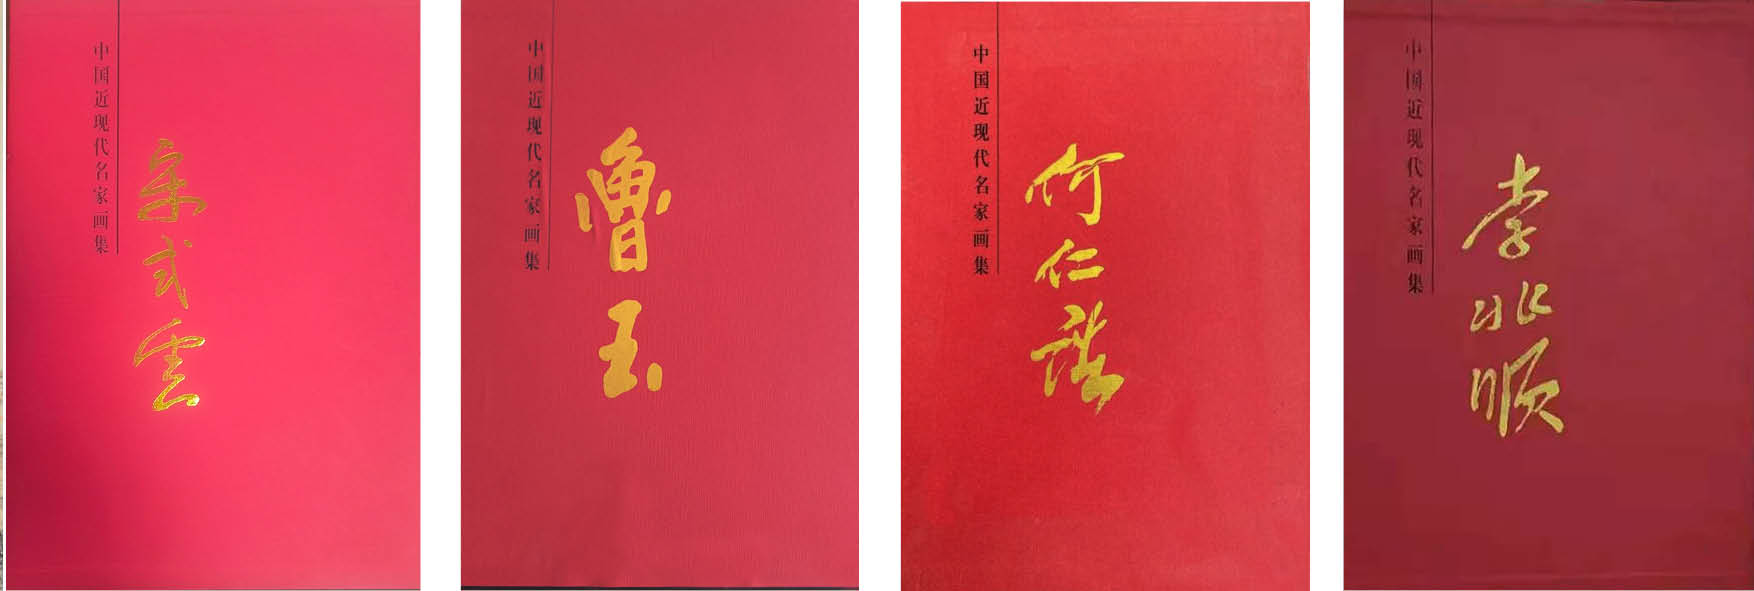 中国近现代名家画集
中国近现代名家画集
魯玉
中国近现代名家画集
何仁谐
中国近现代名家画集
李兆顺